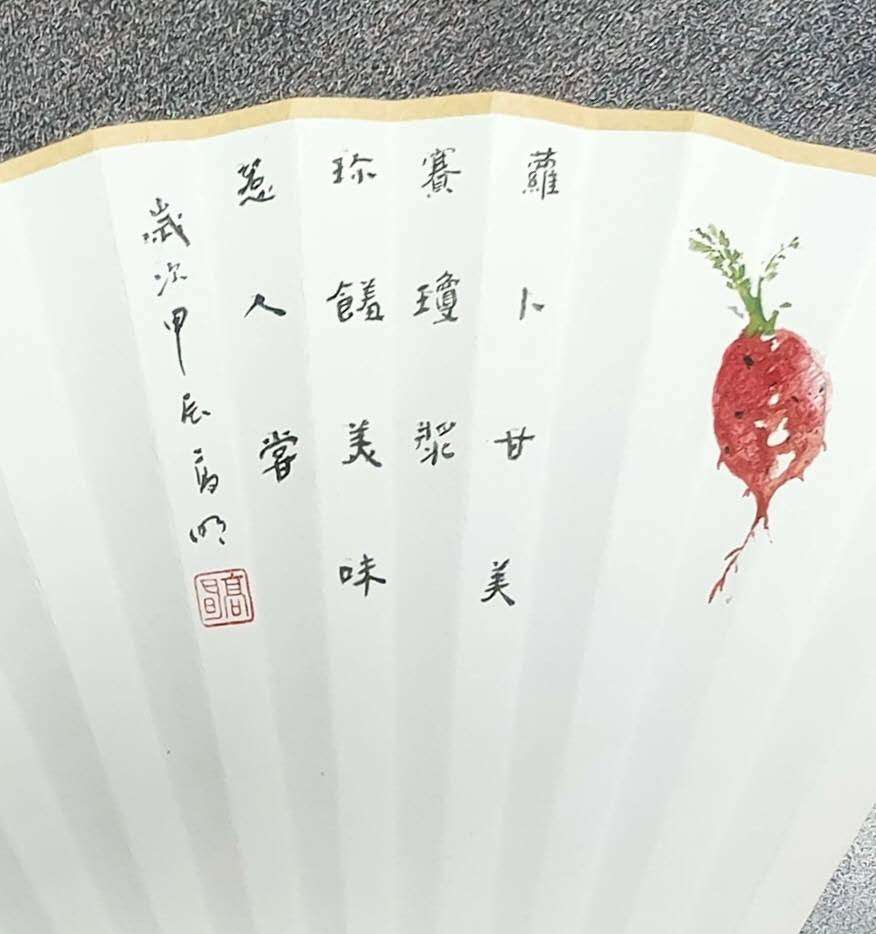 蘿卜甘美
賽瓊漿
珍饈美味
惹人嘗
歲次甲辰高明